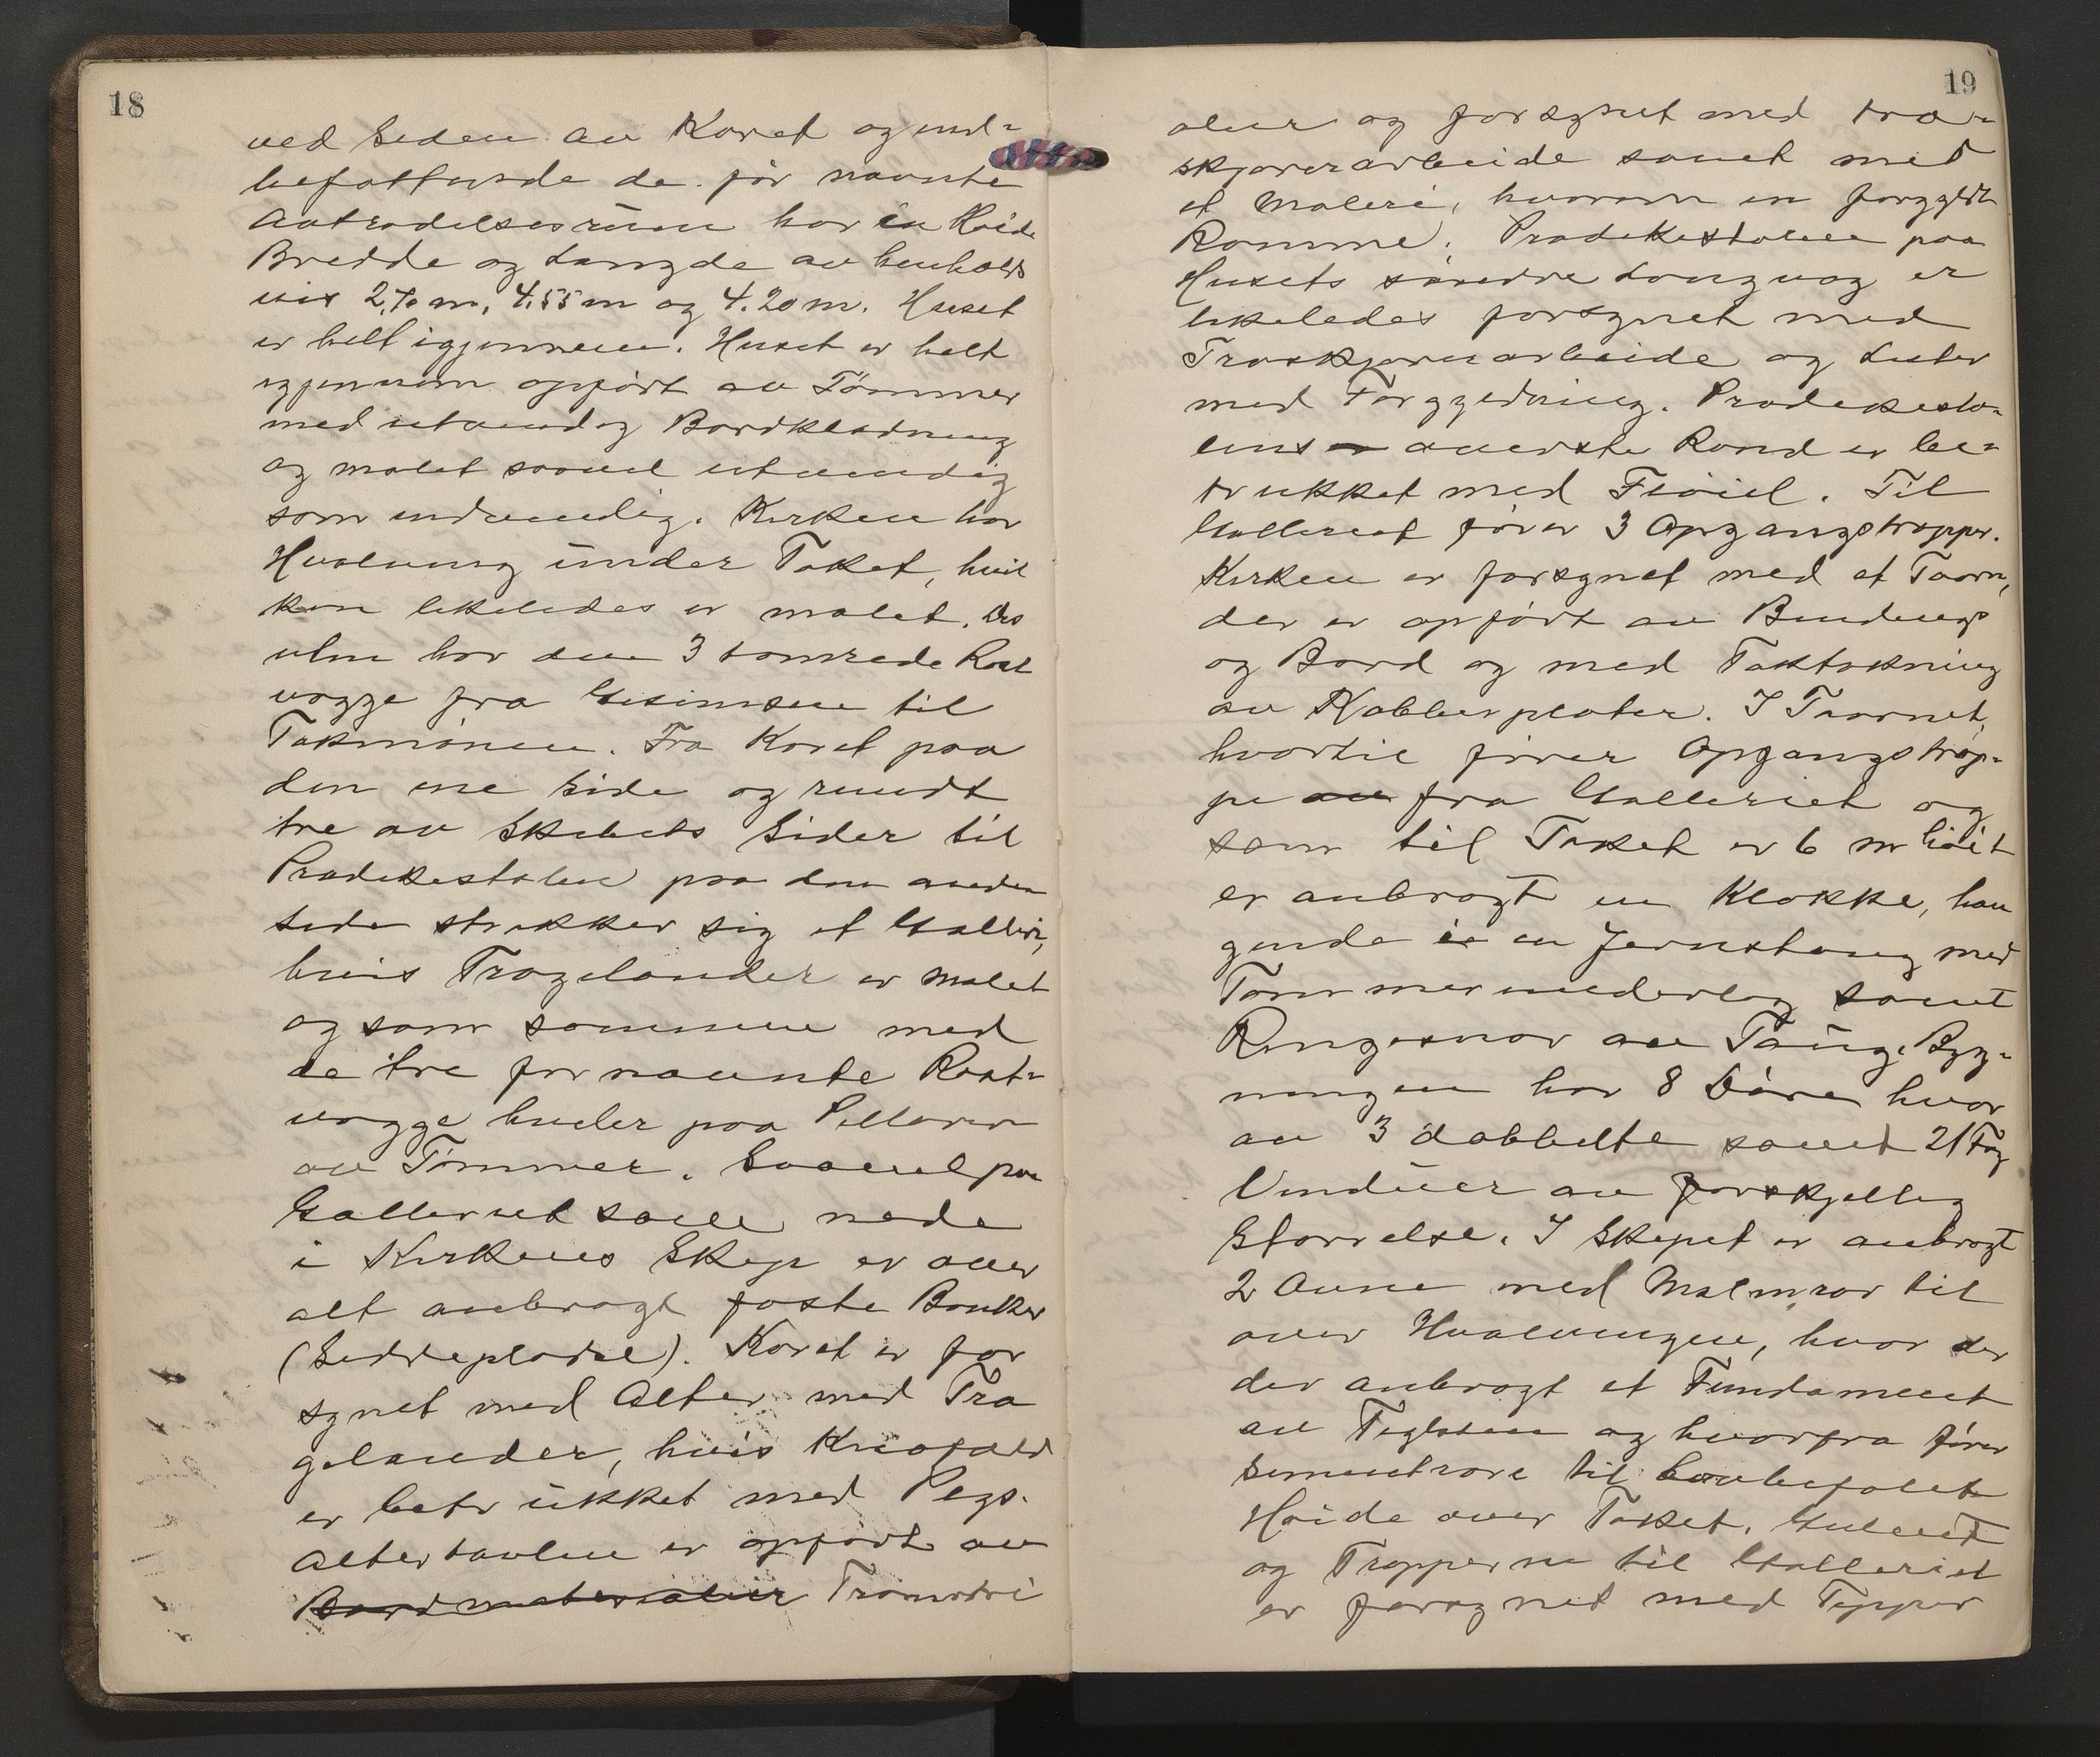 18
ved Siden av Koret og ind-
befattende de før nævnte
Avtrædelsesrum har en Høide
Bredde og Længde av henholds
vis 2.70 m, 4.55 m og 4.20 m. Huset
er helt igjennem. Huset er helt
igjennem opført av Tømmer
med utvendig Bordklædning
og malet saavel utvendig
som indvendig. Kirken har
Hvælving under Taket, hvil
ken likeledes er malet. Des
uten har den 3 tømrede Røst
vægge fra Gesimsen til
Takmønen. Fra Koret paa
den ene Side og rundt
tre av Skibets Sider til
Prædikestolen paa den anden
Side strækker sig et Galleri,
hvis Trægelænder er malet
og som sammen med
de tre fornævnte Røst-
vægge hviler paa Pillarer
av Tømmer. Saavel paa
Galleriet som nede
i Kirkens Skip er over
alt anbragt faste Bænker
(Siddepladse). Koret er for
synet med Alter med Træ
gelænder, hvis Knæfald
er betrukket med Plys.
Altertavlen er opført av
Bordmaterialier Træmateri
19
alier og forsynet med træ-
skjærerarbeide samt med
et Maleri, hvorom en forgyldt
Ramme. Prædikestolen paa
Husets søndre Langvæg er
likeledes forsynet med
Træskjærerarbeide og Lister
med Forgyldning. Prædikesto-
lens øverste Rand er be-
trukket med Fløiel. Til
Galleriet fører 3 Opgangstrapper.
Kirken er forsynet med et Taarn,
der er opført av Bindings
og Bord og med Taktækning
av Kobberplater. I Taarnet,
hvortil fører Opgangstrap-
pe av fra Galleriet og
som til Taket er 6 m høit
er anbragt en Klokke, hæn
gende i en Jernstang med
Tømmerunderlag samt
Ringesnor av Taug. Byg-
ningen har 8 Døre hvor
av 3 dobbelte samt 21 Fag
Vinduer av forskjellig
Størrelse. I Skipet er anbragt
2 Ovne med Malmrør til
over Hvælvingen, hvor der
der anbragt et Fundament
av Teglsten og hvorfra fører
Sementrøre til lovbefalet
Høide over Taket. Gulvet
og Trapperne til Galleriet
er forsynet med Tepper